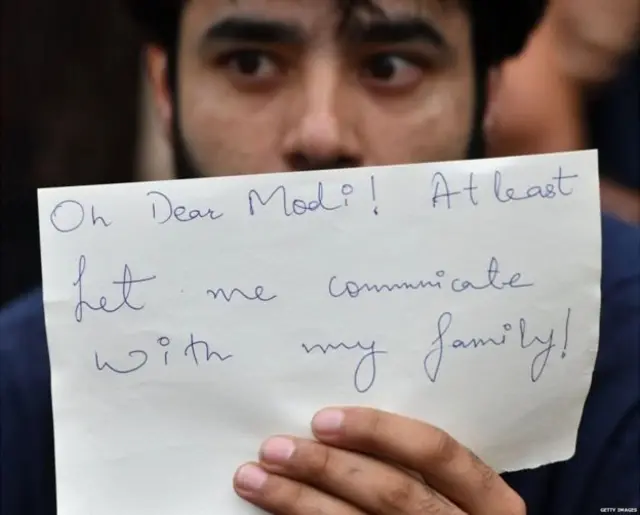 Oh Dear Modi! Atleast
Let me communicate
with my family!
GETTY IMAGES